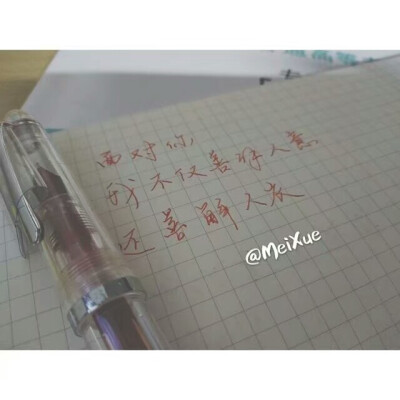 面对你,
我不仅善解人意
还善解人衣
@MeiXue